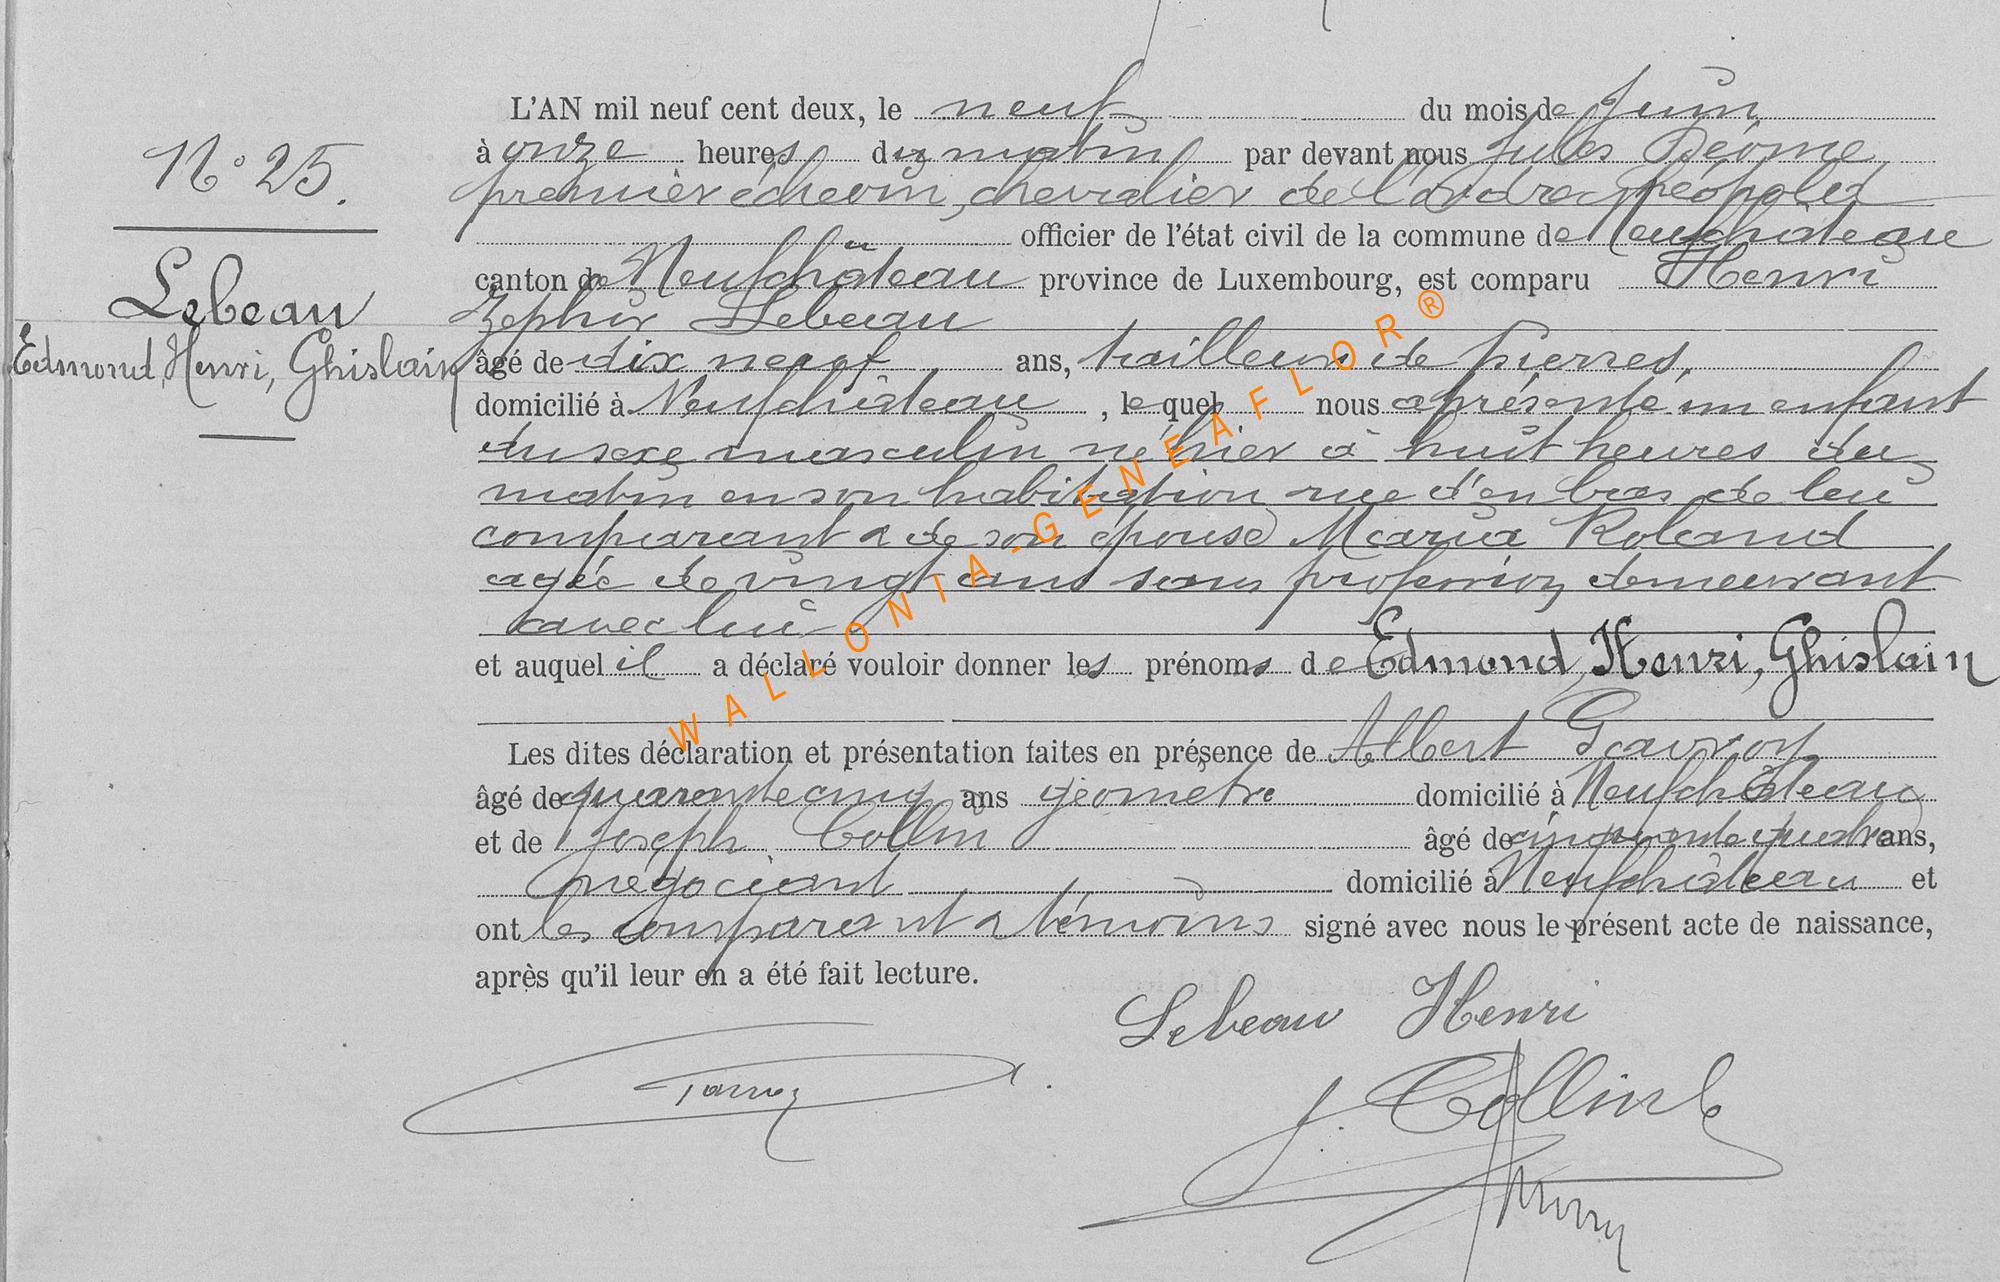 N° 25.
Lebeau
Edmond, Henri, Ghislain
L'AN mil neuf cent deux, le neuf du mois de Juin
à onze heures du matin par devant nous Jules
premier échevin, chevalier de l'ordre Léopold
officier de l'état civil de la commune de Neufchâteau
canton de Neufchâteau province de Luxembourg, est comparu Henri
Zephir Lebeau
âgé de dix neuf ans, tailleur de pierres,
domicilié à Neufchâteau, lequel nous a présenté un enfant
du sexe masculin né hier à huit heures du
matin en son habitation rue d'en bas de lui
comparant & de son épouse Maria Roland
agée de vingt ans sans profession demeurant
avec lui
et auquel il a déclaré vouloir donner les prénoms de Edmond, Henri, Ghislain
Les dites déclaration et présentation faites en présence de Albert
âgé de quarante cinq ans géomètre domicilié à Neufchâteau
et de Joseph Collin âgé de cinquante quatre ans,
négociant domicilié à Neufchâteau et
ont les comparant & témoins signé avec nous le présent acte de naissance,
après qu'il leur en a été fait lecture.
Lebeau Henri
J. Collin
WALLONIA-GENEAFLOR®